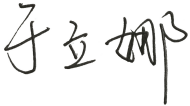 于立娜